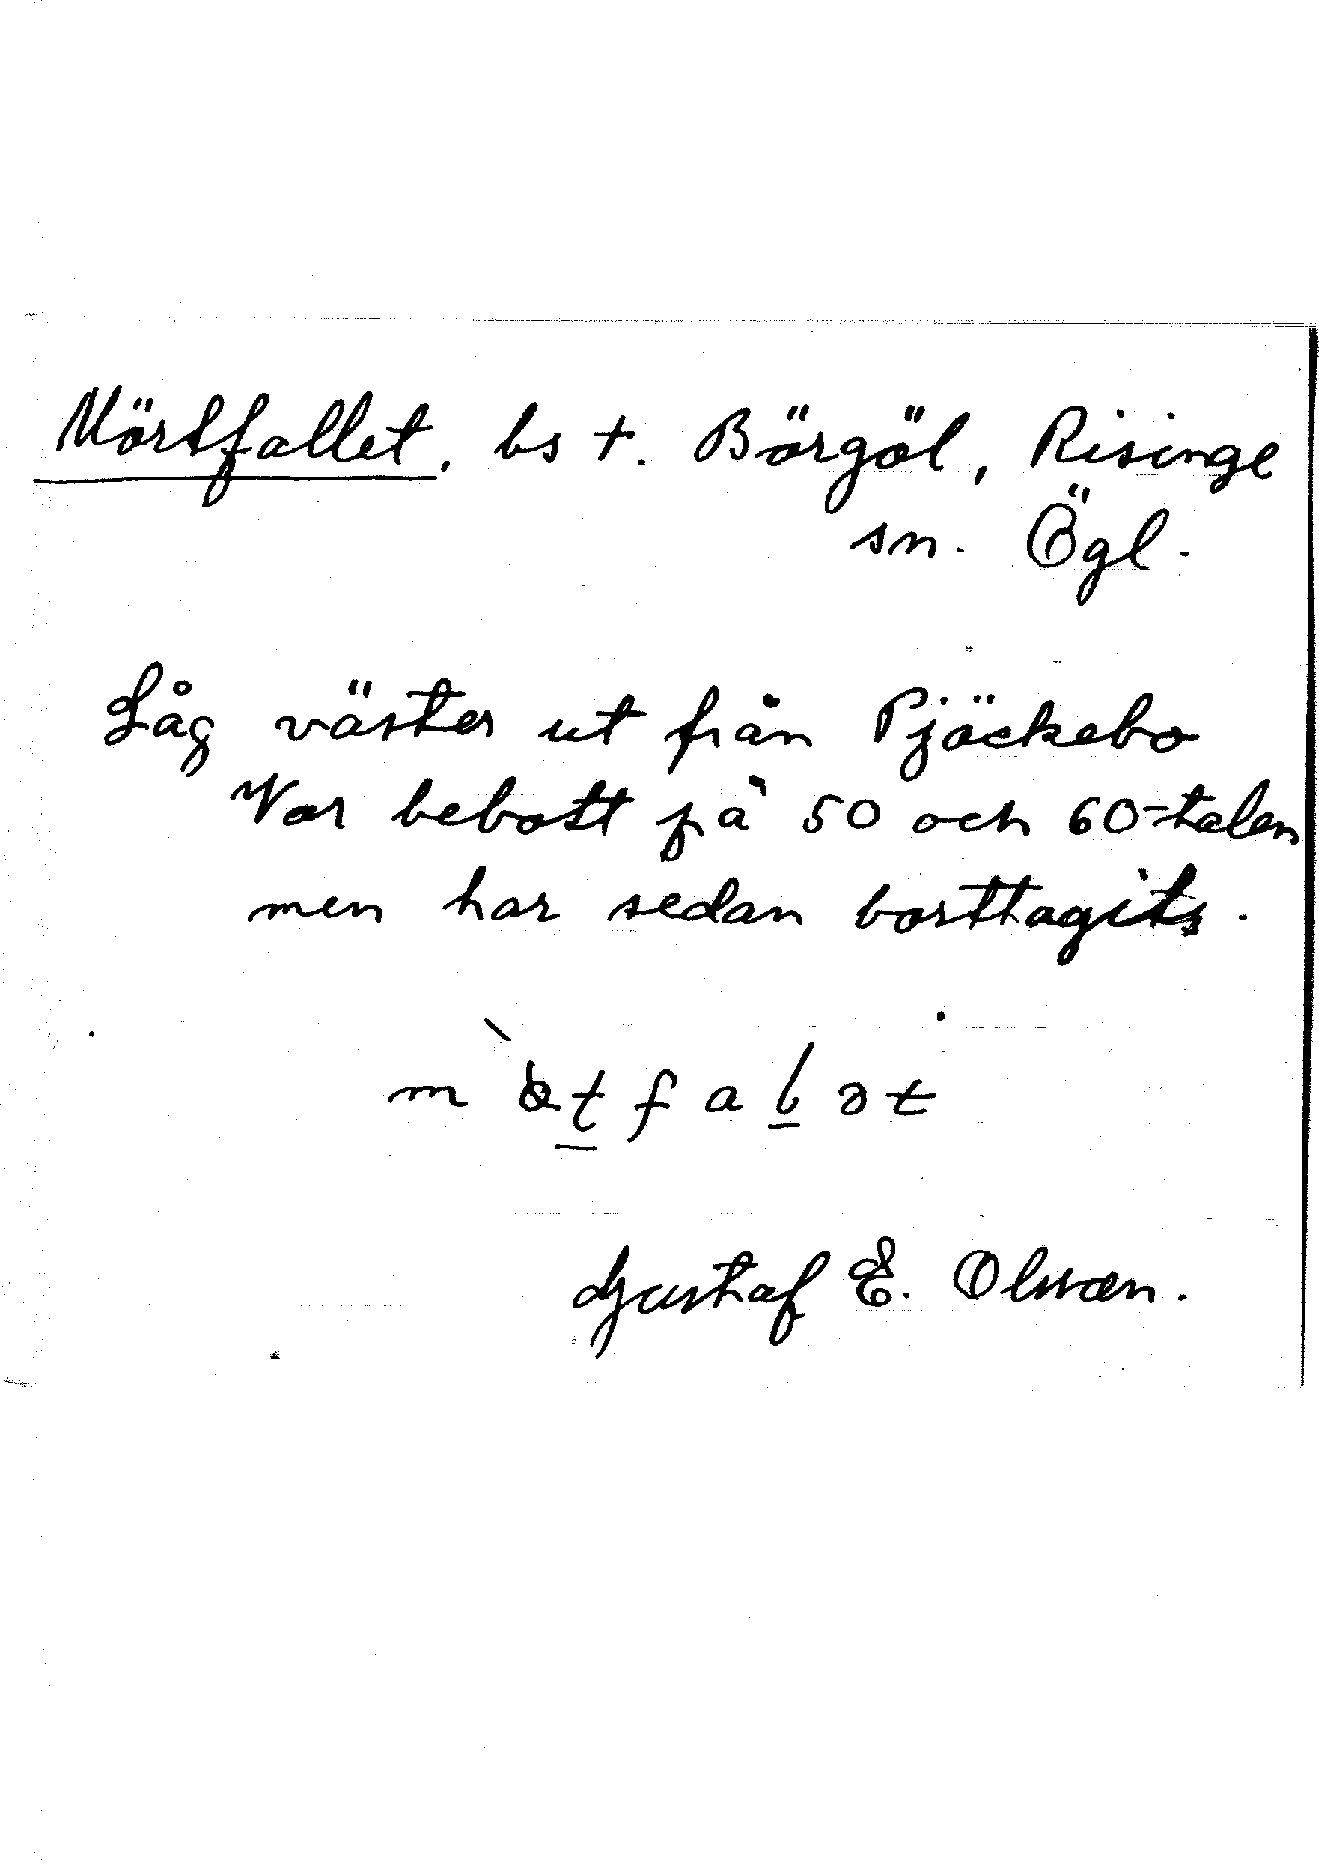 Mörtfallet. bs t. Börgöl, Risinge
sn. Ögl.
Låg väster ut från Pjäckebo
Var bebott på 50 och 60-talen
men har sedan borttagits.
Gustaf E. Olsson.